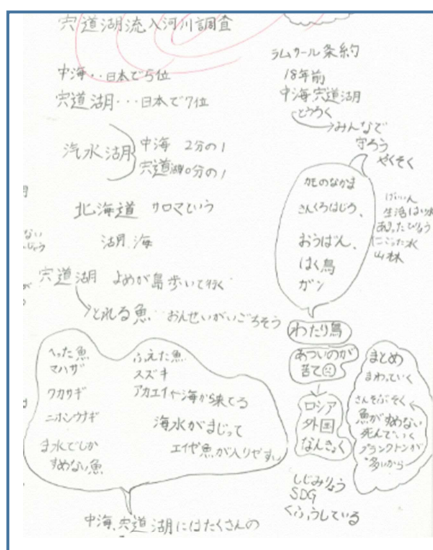 宍道湖流入河川調査
中海・・日本で5位
宍道湖・・・日本で7位
汽水湖
中海 2分の1
宍道湖 0分の1
北海道 サロマという
湖、海
宍道湖 よめが島歩いて行く
とれる魚
へった魚
マハゼ
ワカサギ
ニホンウナギ
ま水でしか
すめない魚
ふえた魚
スズキ
アカエイや海から来てる
海水がまじって
エイや魚が入りやすい
中海、宍道湖にはたくさんの
ラムサール条約
18年前
中海宍道湖
とうろく
みんなで
守ろう
やくそく
カモのなかま
きんくろはじろ、
おうはん、
はく鳥
ガン
にごった水
山林
わたり鳥
あついのが
苦て
ロシア
外国
なんきょく
しじみりょう
SDG
くふうしている
まとめ
まわっていく
さんそぶそく
魚がすめない
死んでいく
プランクトンが
多いから